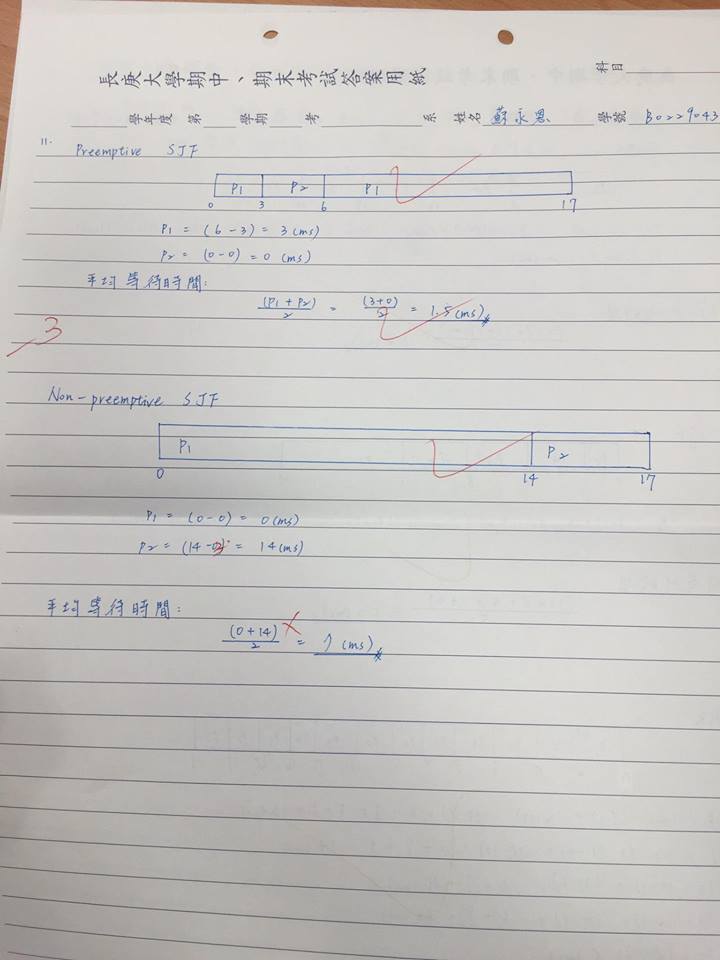 科目
長庚大學期中、期末考試答案用紙
學年度 第 學期 考 系 姓名 蘇永恩 學號 B0229043
11. Preemptive SJF
P1 P2 P1
0 3 6 17
P1 = (6-3) = 3(ms)
P2 = (0-0) = 0 (ms)
平均等待時間:
(P1+P2)/2 = (3+0)/2 = 1.5(ms)
3
Non-preemptive SJF
P1 P2
0 14 17
P1 = (0-0) = 0(ms)
P2 = (14-) = 14(ms)
平均等待時間:
(0+14)/2 = 7 (ms)